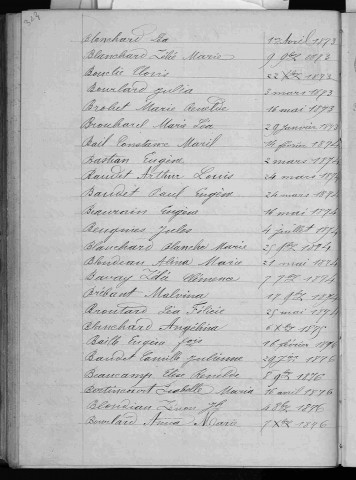 Blanchard Léa 1 avril 1873
Blanchard Zélie Marie 9 9bre 1873
Bouctée Clovis 22 Xbre 1873
Bourlard Julia 3 mars 1873
Brebet Marie 16 mai 1873
Brouhard Marie Léa 20 janvier 1873
Bail Constance 14 février 1874
Bastien Eugène 2 mars 1874
Baudet Arthur Louis 24 mars 1874
Baudet Paul Eugène 24 mars 1874
Beauvrain Eugène 16 mai 1874
Beugnies Jules 4 juillet 1874
Blanchard Blanche Marie 25 1874
Blondeau Alina Marie 21 mai 1874
Bavay Zélá Clémence 7 7bre 1874
Bribant Malvina 17 9bre 1874
Broutard Léa Félicie 25 mai 1874
Blanchard Angélina Xbre 1875
Baille Eugène 16 février 1876
Baudet Camille Julienne 29 1876
Beaucamp Elise 8 9bre 1876
Bettencourt Isabelle Maria 16 avril 1876
Blondiau 1876
Bourlard Anna Marie 8 Xbre 1876